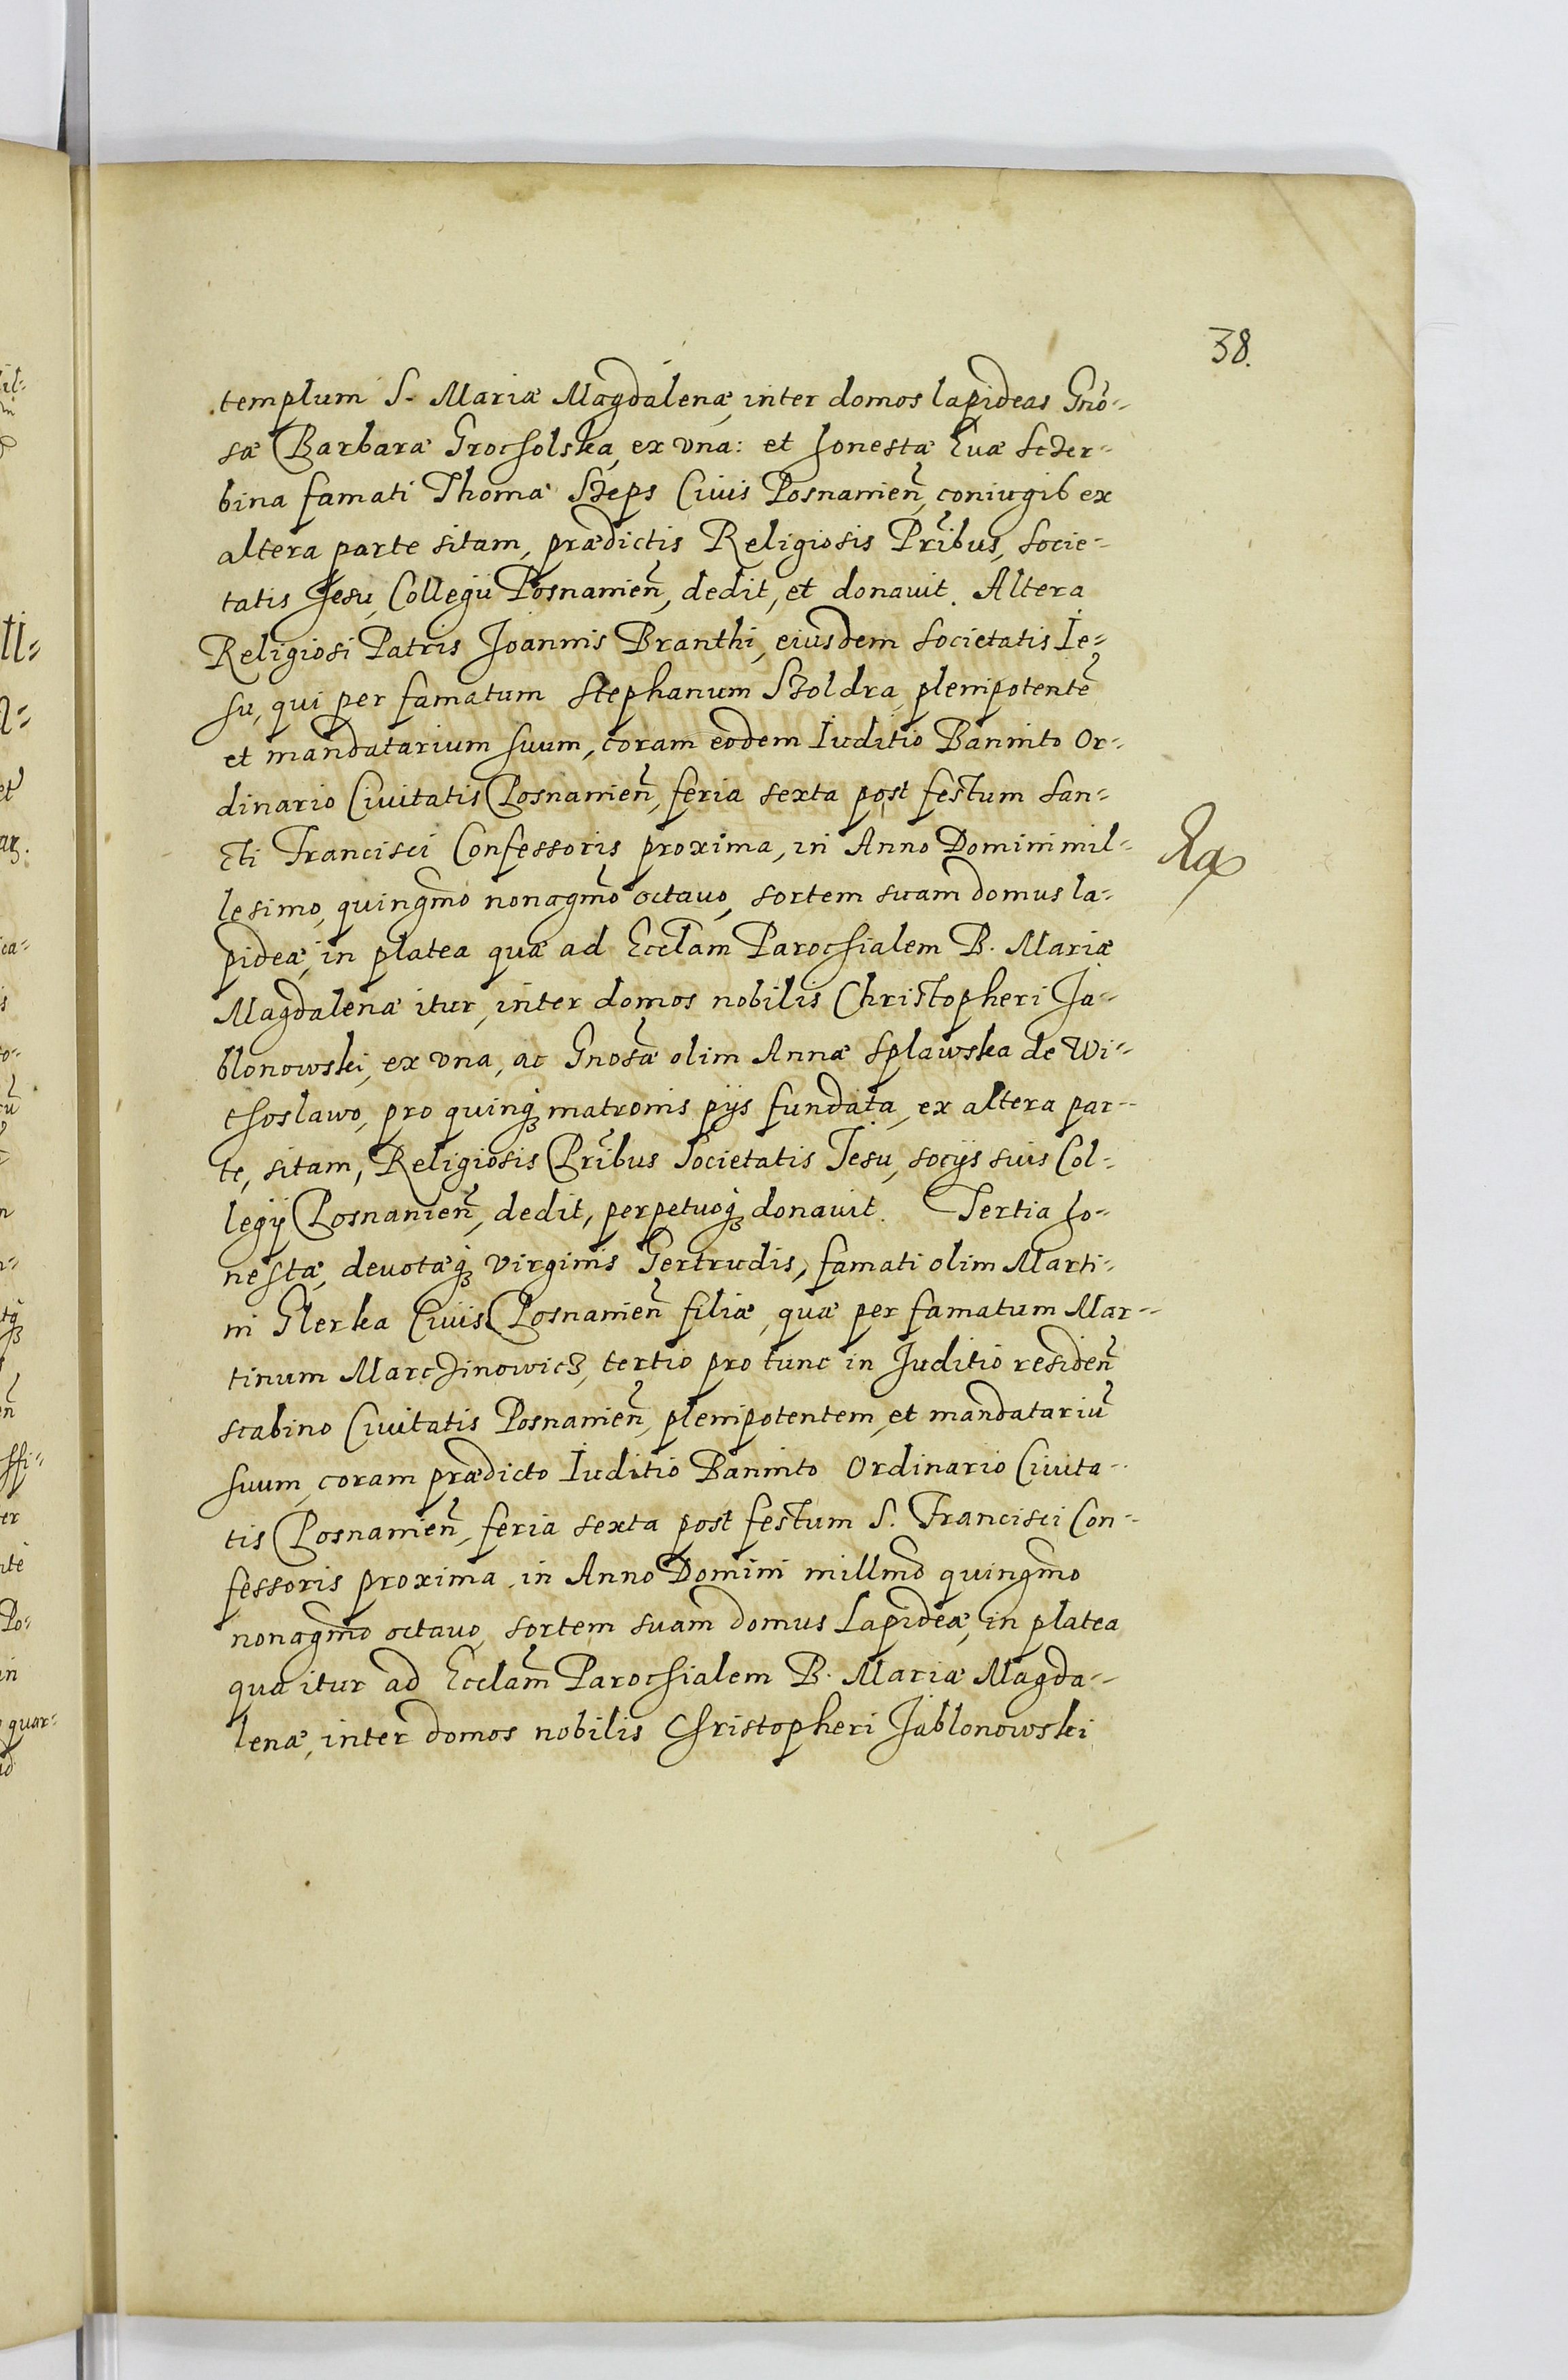 38.
templum S. Mariæ Magdalenæ, inter domos lapideas Gnõ-
sæ Barbaræ Grocholska, ex vna: et honestæ Euæ Sczer-
bina famati Thomæ Szeps Ciuis Posnanień, coniugib ex
altera parte sitam, prædictis Religiosis Pribus, Socie-
tatis Jesu, Collegii Posnanień, dedit, et donauit. Altera
Religiosi Patris Joannis Branthi, eiusdem Societatis Ie-
su, qui per famatum Stephanum Szoldra, plenipotentẽ
et mandatarium suum, coram eodem Iuditio Bannito Or-
dinario Ciuitatis Posnanień, feria sexta post festum San-
cti Francisci Confessoris proxima, in Anno Domini mil-
lesimo, quingmo nonagmo octauo, sortem suam domus la-
pideæ, in platea qua ad Ecclam Parochialem B. Mariæ
Magdalenæ itur, inter domos nobilis Christopheri Ja-
blonowski, ex vna, ac Gnosæ olim Annæ Splawska de Wi-
choslawo, pro quinq matronis pijs fundata, ex altera par-
te, sitam, Religiosis Pribus Societatis Jesu, socijs suis Col-
legij Posnanień, dedit, perpetuoq donauit. Tertia ho-
nestæ, deuotæq virginis Gertrudis, famati olim Marti-
ni Glerka Ciuis Posnanień filiæ, quæ per famatum Mar-
tinum Marczinowicz, tertio pro tunc in Juditio residen̄
scabino Ciuitatis Posnanień, plenipotentem, et mandatariũ
suum, coram prædicto Iuditio Bannito Ordinario Ciuita-
tis Posnanień, feria sexta post festum S. Francisci Con-
fessoris proxima, in Anno Domini millmo quingmo
nonagmo octauo, sortem suam domus Lapideæ, in platea
qua itur ad Ecclam Parochialem B. Mariæ Magda-
lenæ, inter domos nobilis Christopheri Jablonowski